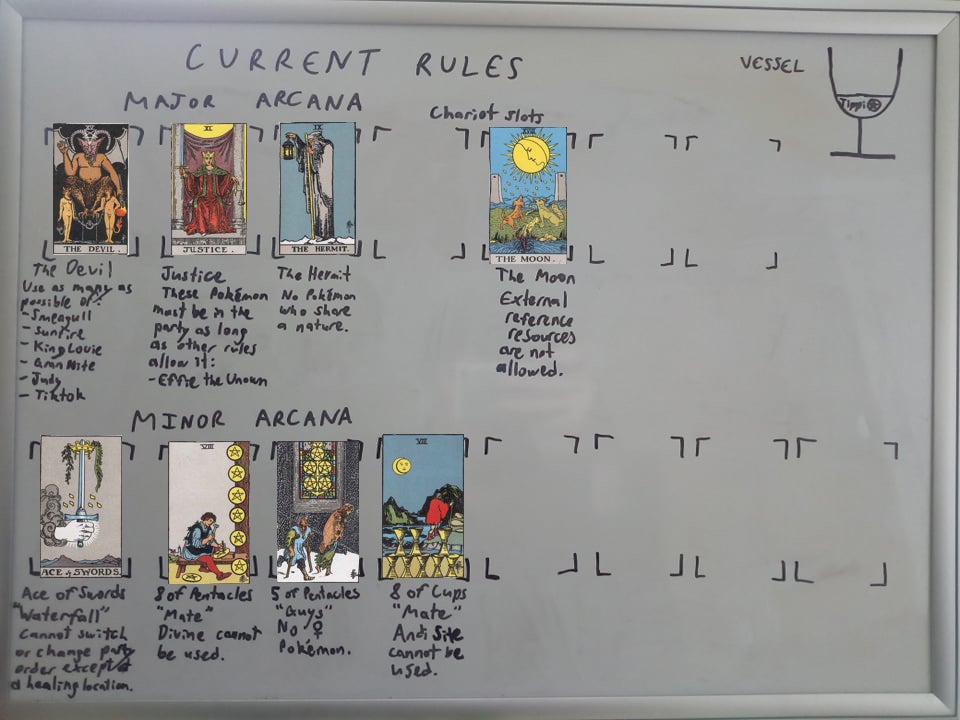 CURRENT RULES
VESSEL
Tippi
MAJOR ARCANA
Chariot slots
XV
XI
IX
XVIII
THE DEVIL.
JUSTICE.
THE HERMIT.
THE MOON.
The Devil
Use as many as
possible of:
- Smeagull
- Sunfire
- King Louie
- Gran Nite
- Judy
- Tiktok
Justice
These Pokémon
must be in the
party as long
as other rules
allow it:
- Effie the Unown
The Hermit
No Pokémon
who share
a nature.
The Moon
External
reference
resources
are not
allowed.
MINOR ARCANA
VIII
VIII
ACE of SWORDS.
Ace of Swords
"Waterfall"
Cannot switch
or change party
order except @
a healing location.
8 of Pentacles
"Mate"
Divine cannot
be used.
5 of Pentacles
"Guys"
No ♀
Pokémon.
8 of Cups
"Mate"
Andi Site
cannot be
used.